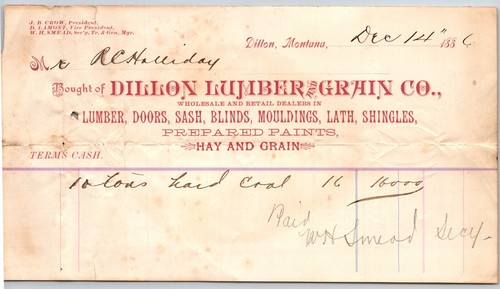 J. B. CROW, President.
D. LAMONT, Vice President.
W. H. SMEAD, Sec'y, Tr. & Gen. Mgr.
Dillon, Montana, Dec 14" 1886
Mr R C Holliday
Bought of DILLON LUMBER AND GRAIN CO.,
WHOLESALE AND RETAIL DEALERS IN
LUMBER, DOORS, SASH, BLINDS, MOULDINGS, LATH, SHINGLES,
PREPARED PAINTS,
HAY AND GRAIN
TERMS CASH.
10 tons hard coal 16 16000
Paid
W H Smead Secy